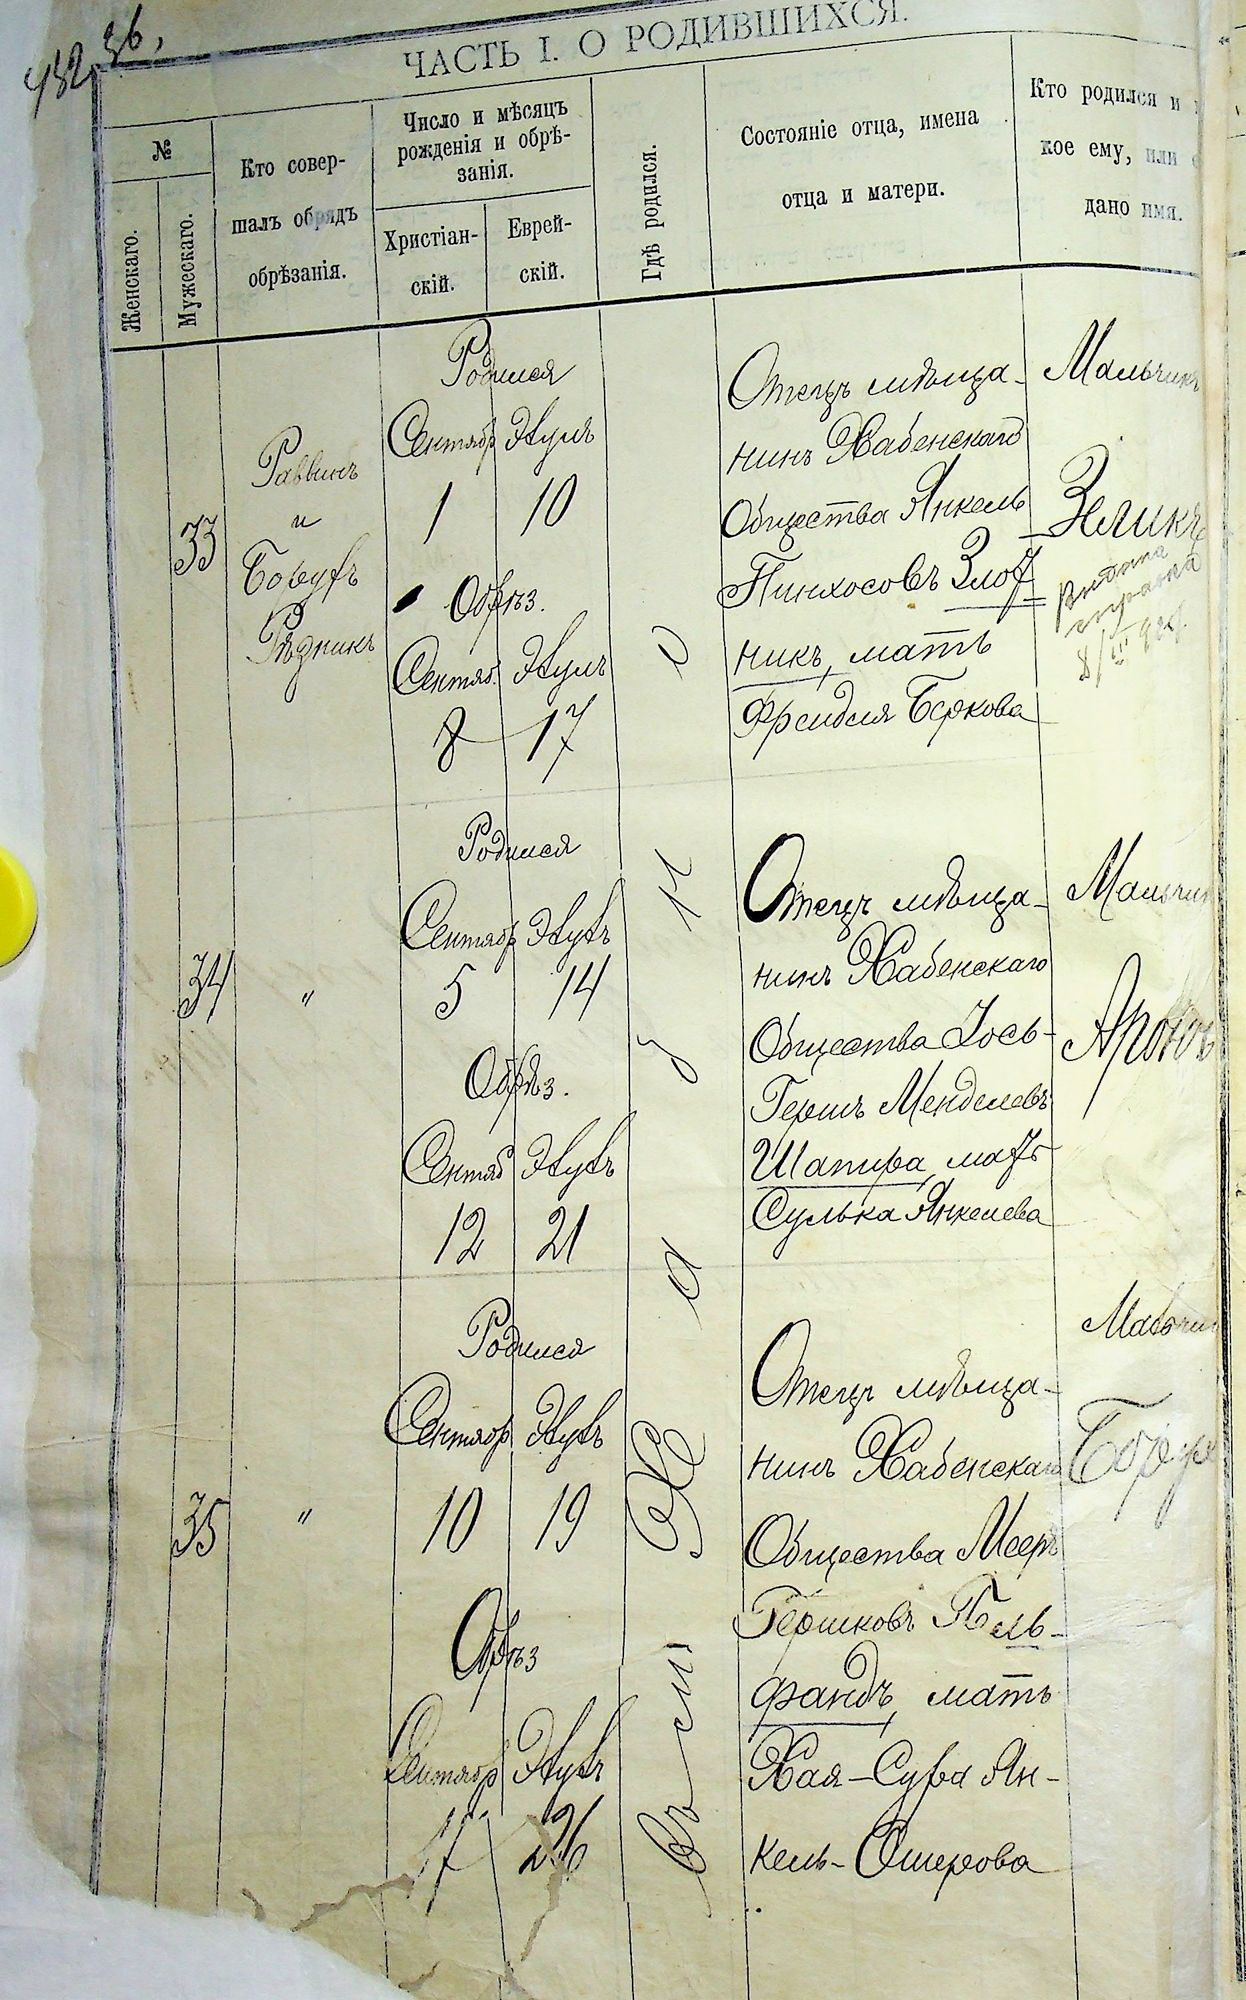 432 36,
ЧАСТЬ I. О РОДИВШИХСЯ.
№
Женскаго.
Мужескаго.
Кто совер-
шалъ обрядъ
обрѣзанія.
Число и мѣсяцъ
рожденія и обрѣ-
занія.
Христіан-
скій.
Еврей-
скій.
Гдѣ родился.
Состояніе отца, имена
отца и матери.
Кто родился и
кое ему, или
дано имя.
33
Раввинъ
и
Борухъ
Рѣзникъ
Родился
Сентябр Элулъ
1 10
Обрѣз.
Сентяб. Элулъ
8 17
Отецъ мѣща-
нинъ Хабенскаго
Общества Янкель
Пинхосовъ Злот
никъ, мать
Фрейдля Беркова
Мальчикъ
Зеликъ
34
"
Родился
Сентябр Элулъ
5 14
Обрѣз.
Сентяб Элулъ
12 21
Отецъ мѣща-
нинъ Хабенскаго
Общества Іось-
Гершъ Менделевъ
Шапира, мать
Сулька Янкелева
Мальчик
Аронъ
35
"
Родился
Сентябр Элулъ
10 19
Обрѣз
Сентябр Элулъ
17 26
Отецъ мѣща-
нинъ Хабенскаго
Общества Мееръ
Гершковъ Гель-
фандъ, мать
Хая-Сура Ян-
кель-Ошерова
Мальчик
Борух
Въ м Хабно